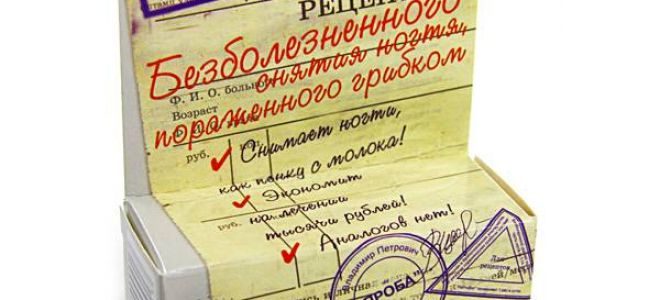 РЕЦЕП
Безболезненного
снятия ногтя,
Ф. И. О. больно
пораженного грибком
Возраст
руб.
Снимает ногти,
как пенку с молока!
Экономит
руб.
на лечении
тысячи рублей!
Аналогов нет!
Владимир Петрович
Для
рецептов
ей/мл
ь и личная
"ПРОБА"